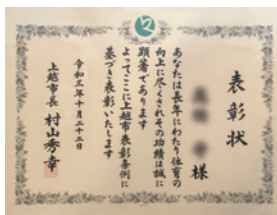 表彰状
様
あなたは長年にわたり体育の
向上に尽くされその功績は誠に
顕著であります
よってここに上越市表彰条例に
基づき表彰いたします
令和三年十月二十二日
上越市長 村山秀幸